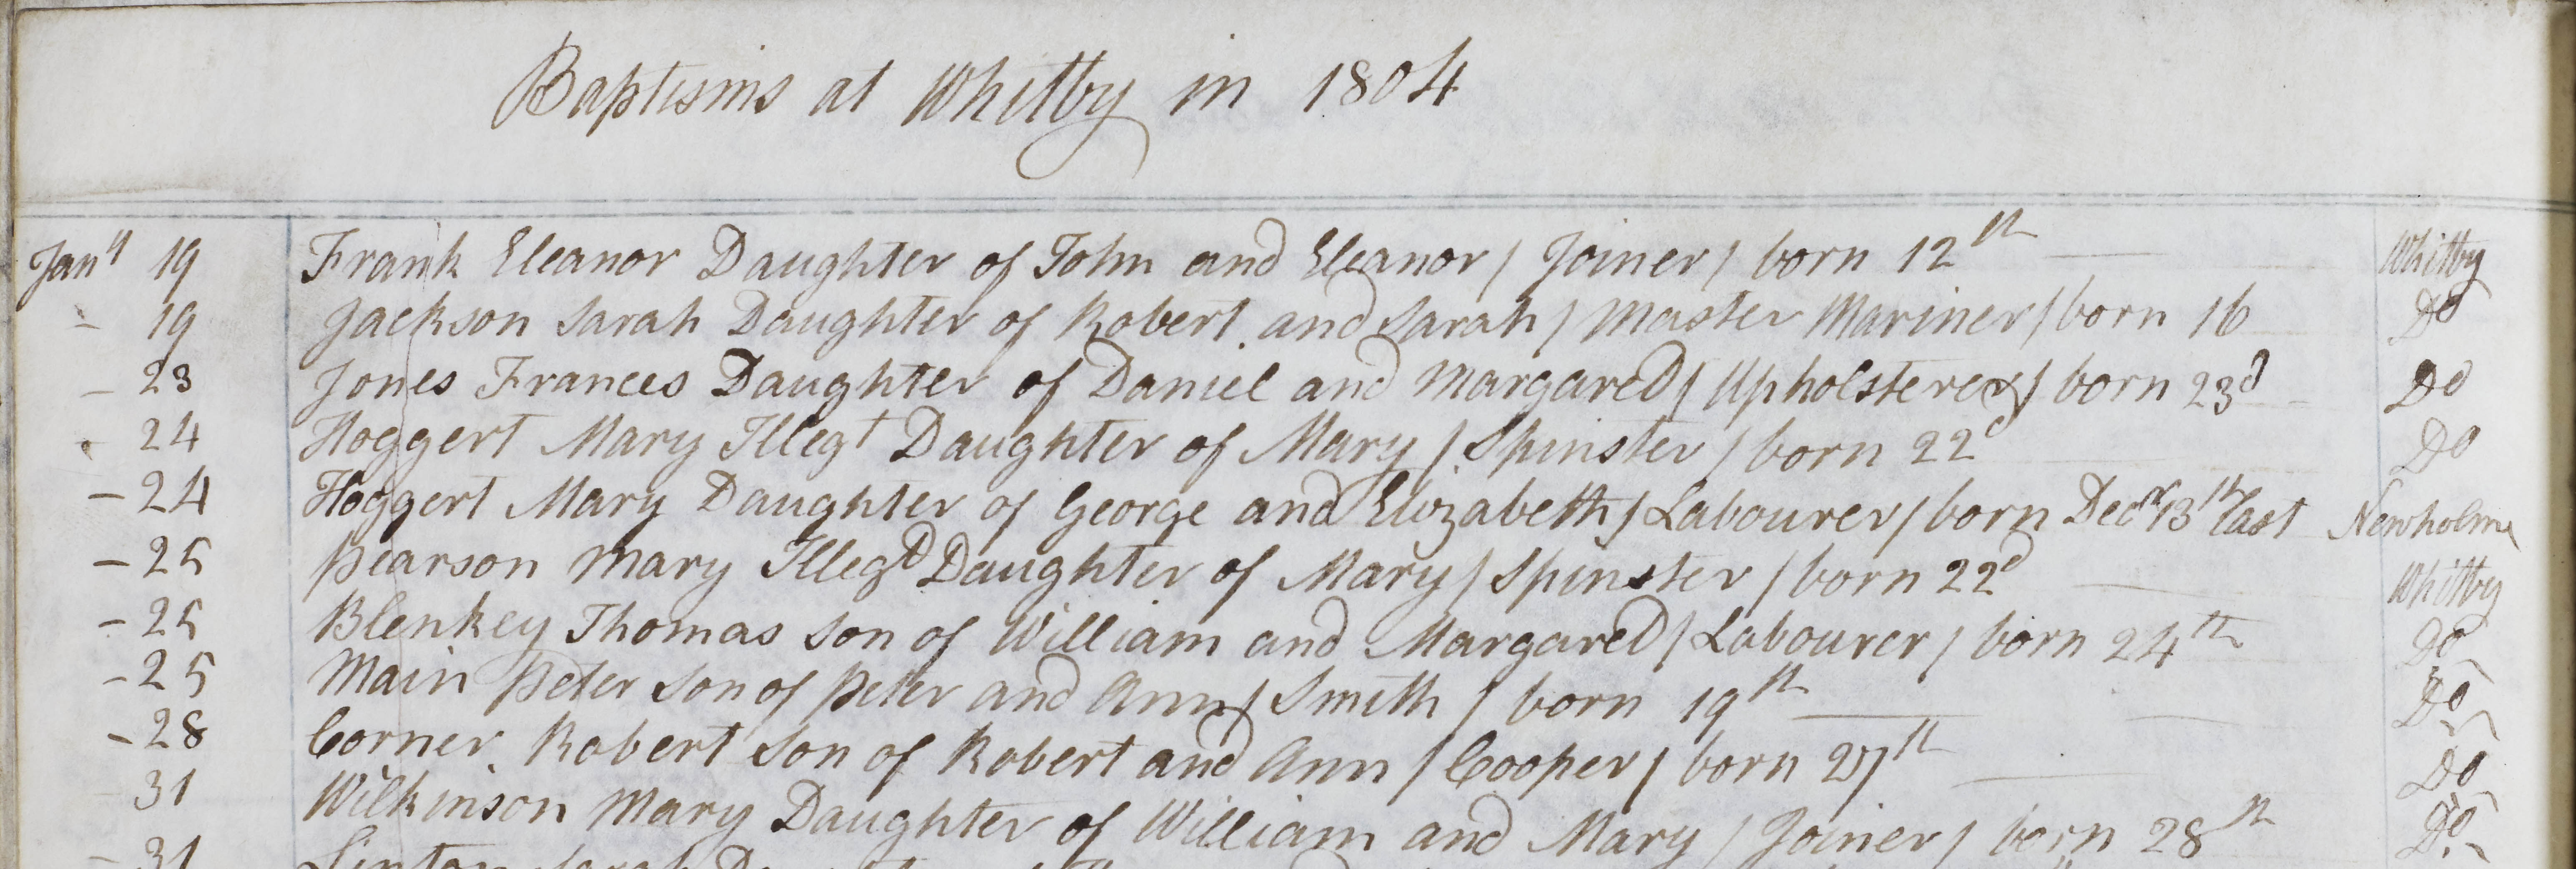 Baptisms at Whitby in 1804
Jany 19 Frank Eleanor Daughter of John and Eleanor / Joiner / born 12th Whitby
- 19 Jackson Sarah Daughter of Robert and Sarah / Master Mariner / born 16 Do
- 23 Jones Frances Daughter of Daniel and Margaret / Upholsterer / born 23d Do
- 24 Hoggert Mary Illegt Daughter of Mary / Spinster / born 22d Do
- 24 Hoggert Mary Daughter of George and Elizabeth / Labourer / born Decr 13th last Newholm
- 25 Pearson Mary Illegt Daughter of Mary / Spinster / born 22d Whitby
- 25 Blenkey Thomas Son of William and Margaret / Labourer / born 24th Do
- 25 Main Peter Son of Peter and Ann / Smith / born 19th Do
- 28 Corner Robert Son of Robert and Ann / Cooper / born 27th Do
31 Wilkinson Mary Daughter of William and Mary / Joiner / born 28th Do
- 31 Linton Sarah